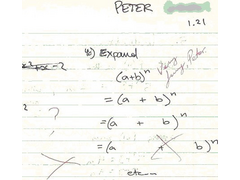 PETER
1.21
Expand
(a+b)ⁿ
Very funny, Peter.
= (a + b)ⁿ
?
= (a + b)ⁿ
= (a + b)ⁿ
etc...